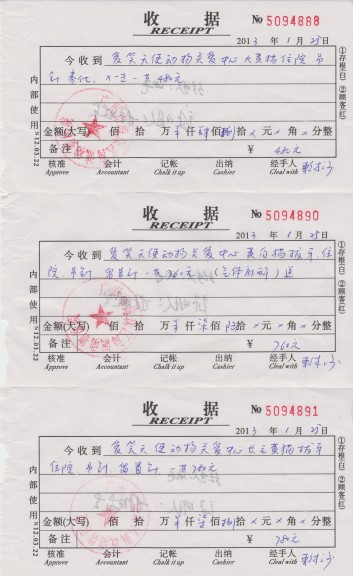 收 据 No 5094888
RECEIPT
2013 年 1 月 25日
今 收 到 爱笑天使动物关爱中心 大黄猫住院 吊
针
480元
金额(大写) 佰 拾 万 仟 肆佰捌拾 元 角 分整
备 注 ¥ 480元
核准 会计 记帐 出纳 经手人
Approve Accountant Chalk it up Cashier Cleal with
内部使用 N12.03.22
①存根(白) ②顾客(红)
收 据 No 5094890
RECEIPT
2013 年 1 月 25日
今 收 到 爱笑天使动物关爱中心 黄白猫拔牙.住
院.吊针.留置针 760元
金额(大写) 佰 拾 万 仟 柒佰 陆拾 元 角 分整
备 注 ¥ 760元
核准 会计 记帐 出纳 经手人
Approve Accountant Chalk it up Cashier Cleal with
内部使用 N12.03.22
①存根(白) ②顾客(红)
收 据 No 5094891
RECEIPT
2013 年 1 月 25日
今 收 到 爱笑天使动物关爱中心 黄猫拔牙
住院 吊针 留置针 780元
金额(大写) 佰 拾 万 仟 柒佰捌拾 元 角 分整
备 注 ¥ 780元
核准 会计 记帐 出纳 经手人
Approve Accountant Chalk it up Cashier Cleal with
内部使用 N12.03.22
①存根(白) ②顾客(红)